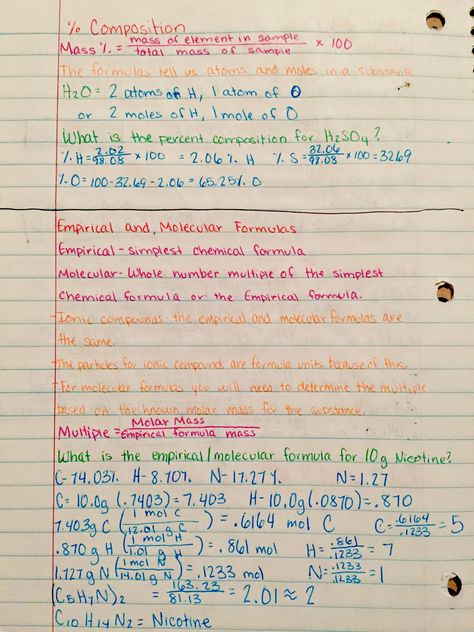 % Composition
Mass % = mass of element in sample / total mass of sample × 100
The formulas tell us atoms and moles in a substance
H₂O = 2 atoms of H, 1 atom of O
or 2 moles of H, 1 mole of O
What is the percent composition for H₂SO₄?
% H = 2.02/98.08 × 100 = 2.06 % H   % S = 32.06/98.08 × 100 = 32.69
% O = 100 - 32.69 - 2.06 = 65.25% O
Empirical and Molecular Formulas
Empirical - simplest chemical formula
Molecular - Whole number multiple of the simplest
chemical formula or the Empirical formula.
- Ionic compounds the empirical and molecular formulas are
the same.
- The particles for ionic compounds are formula units because of this.
- For molecular formulas you will need to determine the multiple
based on the known molar mass for the substance.
Multiple = Molar Mass / Empirical formula mass
What is the empirical/molecular formula for 10g Nicotine?
C - 74.03% H - 8.70% N - 17.27% N = 1.27
C = 10.0g (.7403) = 7.403 H - 10.0g (.0870) = .870
7.403g C (1 mol C / 12.01 g C) = .6164 mol C   C = .6164/.1233 = 5
.870 g H (1 mol H / 1.01 g H) = .861 mol   H = .861/.1233 = 7
1.727 g N (1 mol N / 14.01 g N) = .1233 mol   N = .1233/.1233 = 1
(C₅H₇N)₂ = 163.23/81.13 = 2.01 ≈ 2
C₁₀H₁₄N₂ = Nicotine